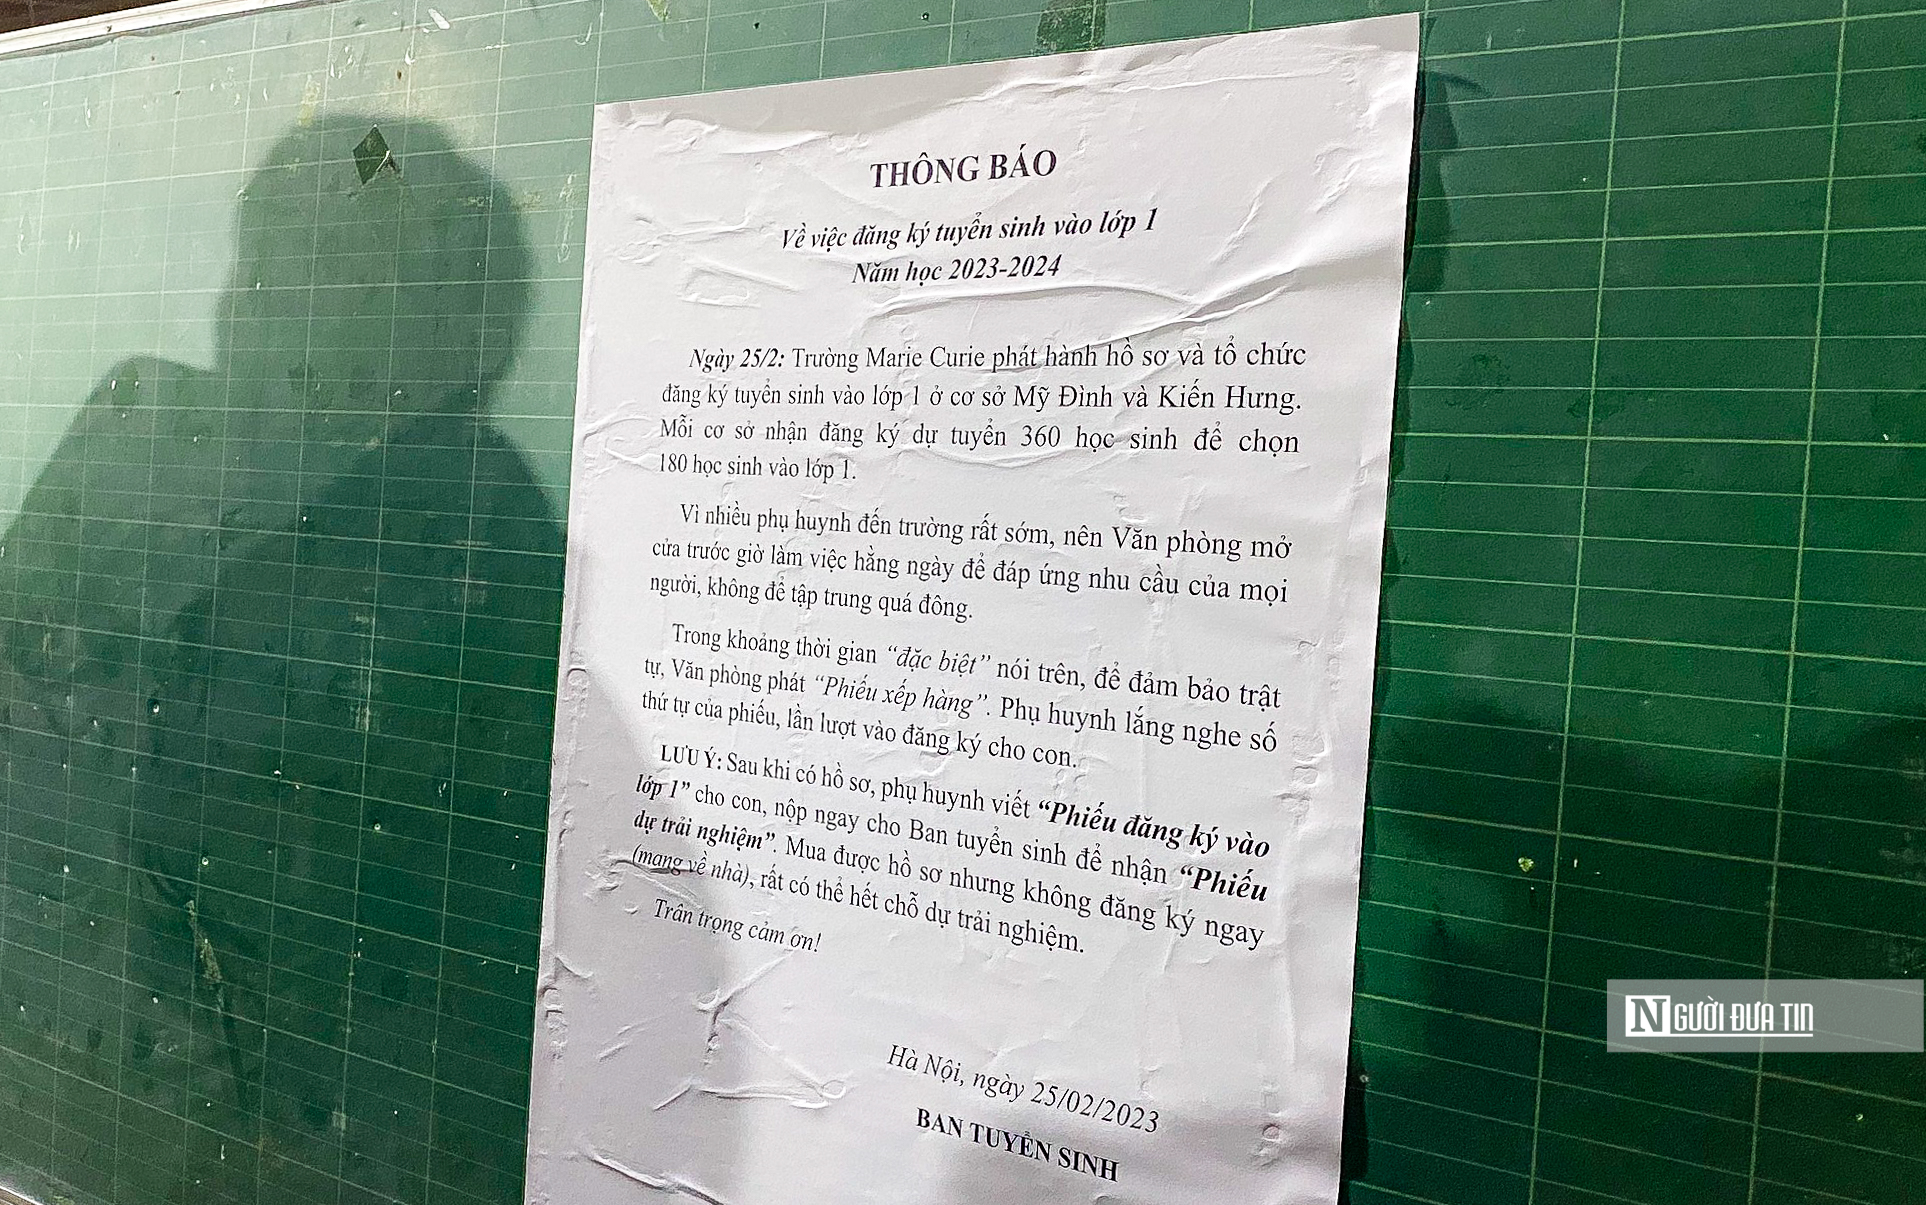 THÔNG BÁO
Về việc đăng ký tuyển sinh vào lớp 1
Năm học 2023-2024
Ngày 25/2: Trường Marie Curie phát hành hồ sơ và tổ chức
đăng ký tuyển sinh vào lớp 1 ở cơ sở Mỹ Đình và Kiến Hưng.
Mỗi cơ sở nhận đăng ký dự tuyển 360 học sinh để chọn
180 học sinh vào lớp 1.
Vì nhiều phụ huynh đến trường rất sớm, nên Văn phòng mở
cửa trước giờ làm việc hằng ngày để đáp ứng nhu cầu của mọi
người, không để tập trung quá đông.
Trong khoảng thời gian “đặc biệt” nói trên, để đảm bảo trật
tự, Văn phòng phát “Phiếu xếp hàng”. Phụ huynh lắng nghe số
thứ tự của phiếu, lần lượt vào đăng ký cho con.
LƯU Ý: Sau khi có hồ sơ, phụ huynh viết “Phiếu đăng ký vào
lớp 1” cho con, nộp ngay cho Ban tuyển sinh để nhận “Phiếu
dự trải nghiệm”. Mua được hồ sơ nhưng không đăng ký ngay
(mang về nhà), rất có thể hết chỗ dự trải nghiệm.
Trân trọng cảm ơn!
Hà Nội, ngày 25/02/2023
BAN TUYỂN SINH
NGƯỜI ĐƯA TIN